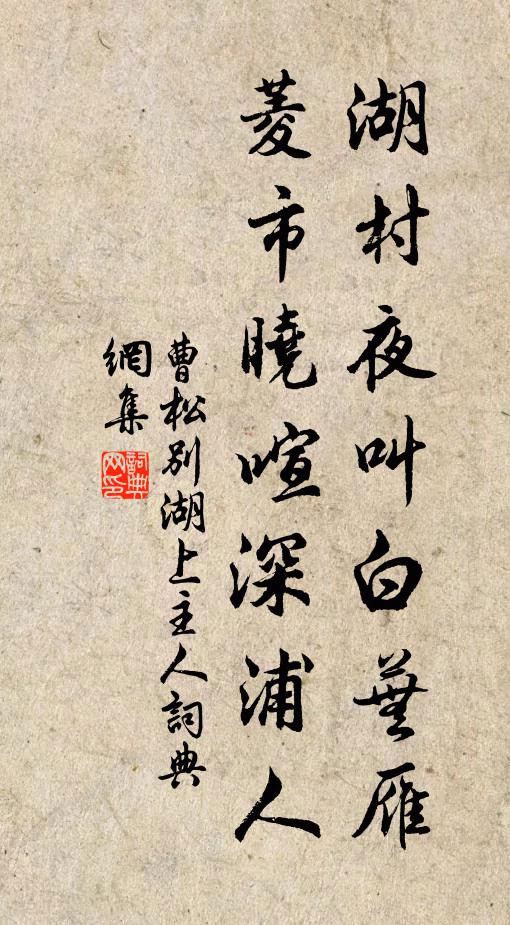 湖村夜叫白蕪雁
菱市曉喧深浦人
曹松別湖上主人詞典
網集
詞典
网印